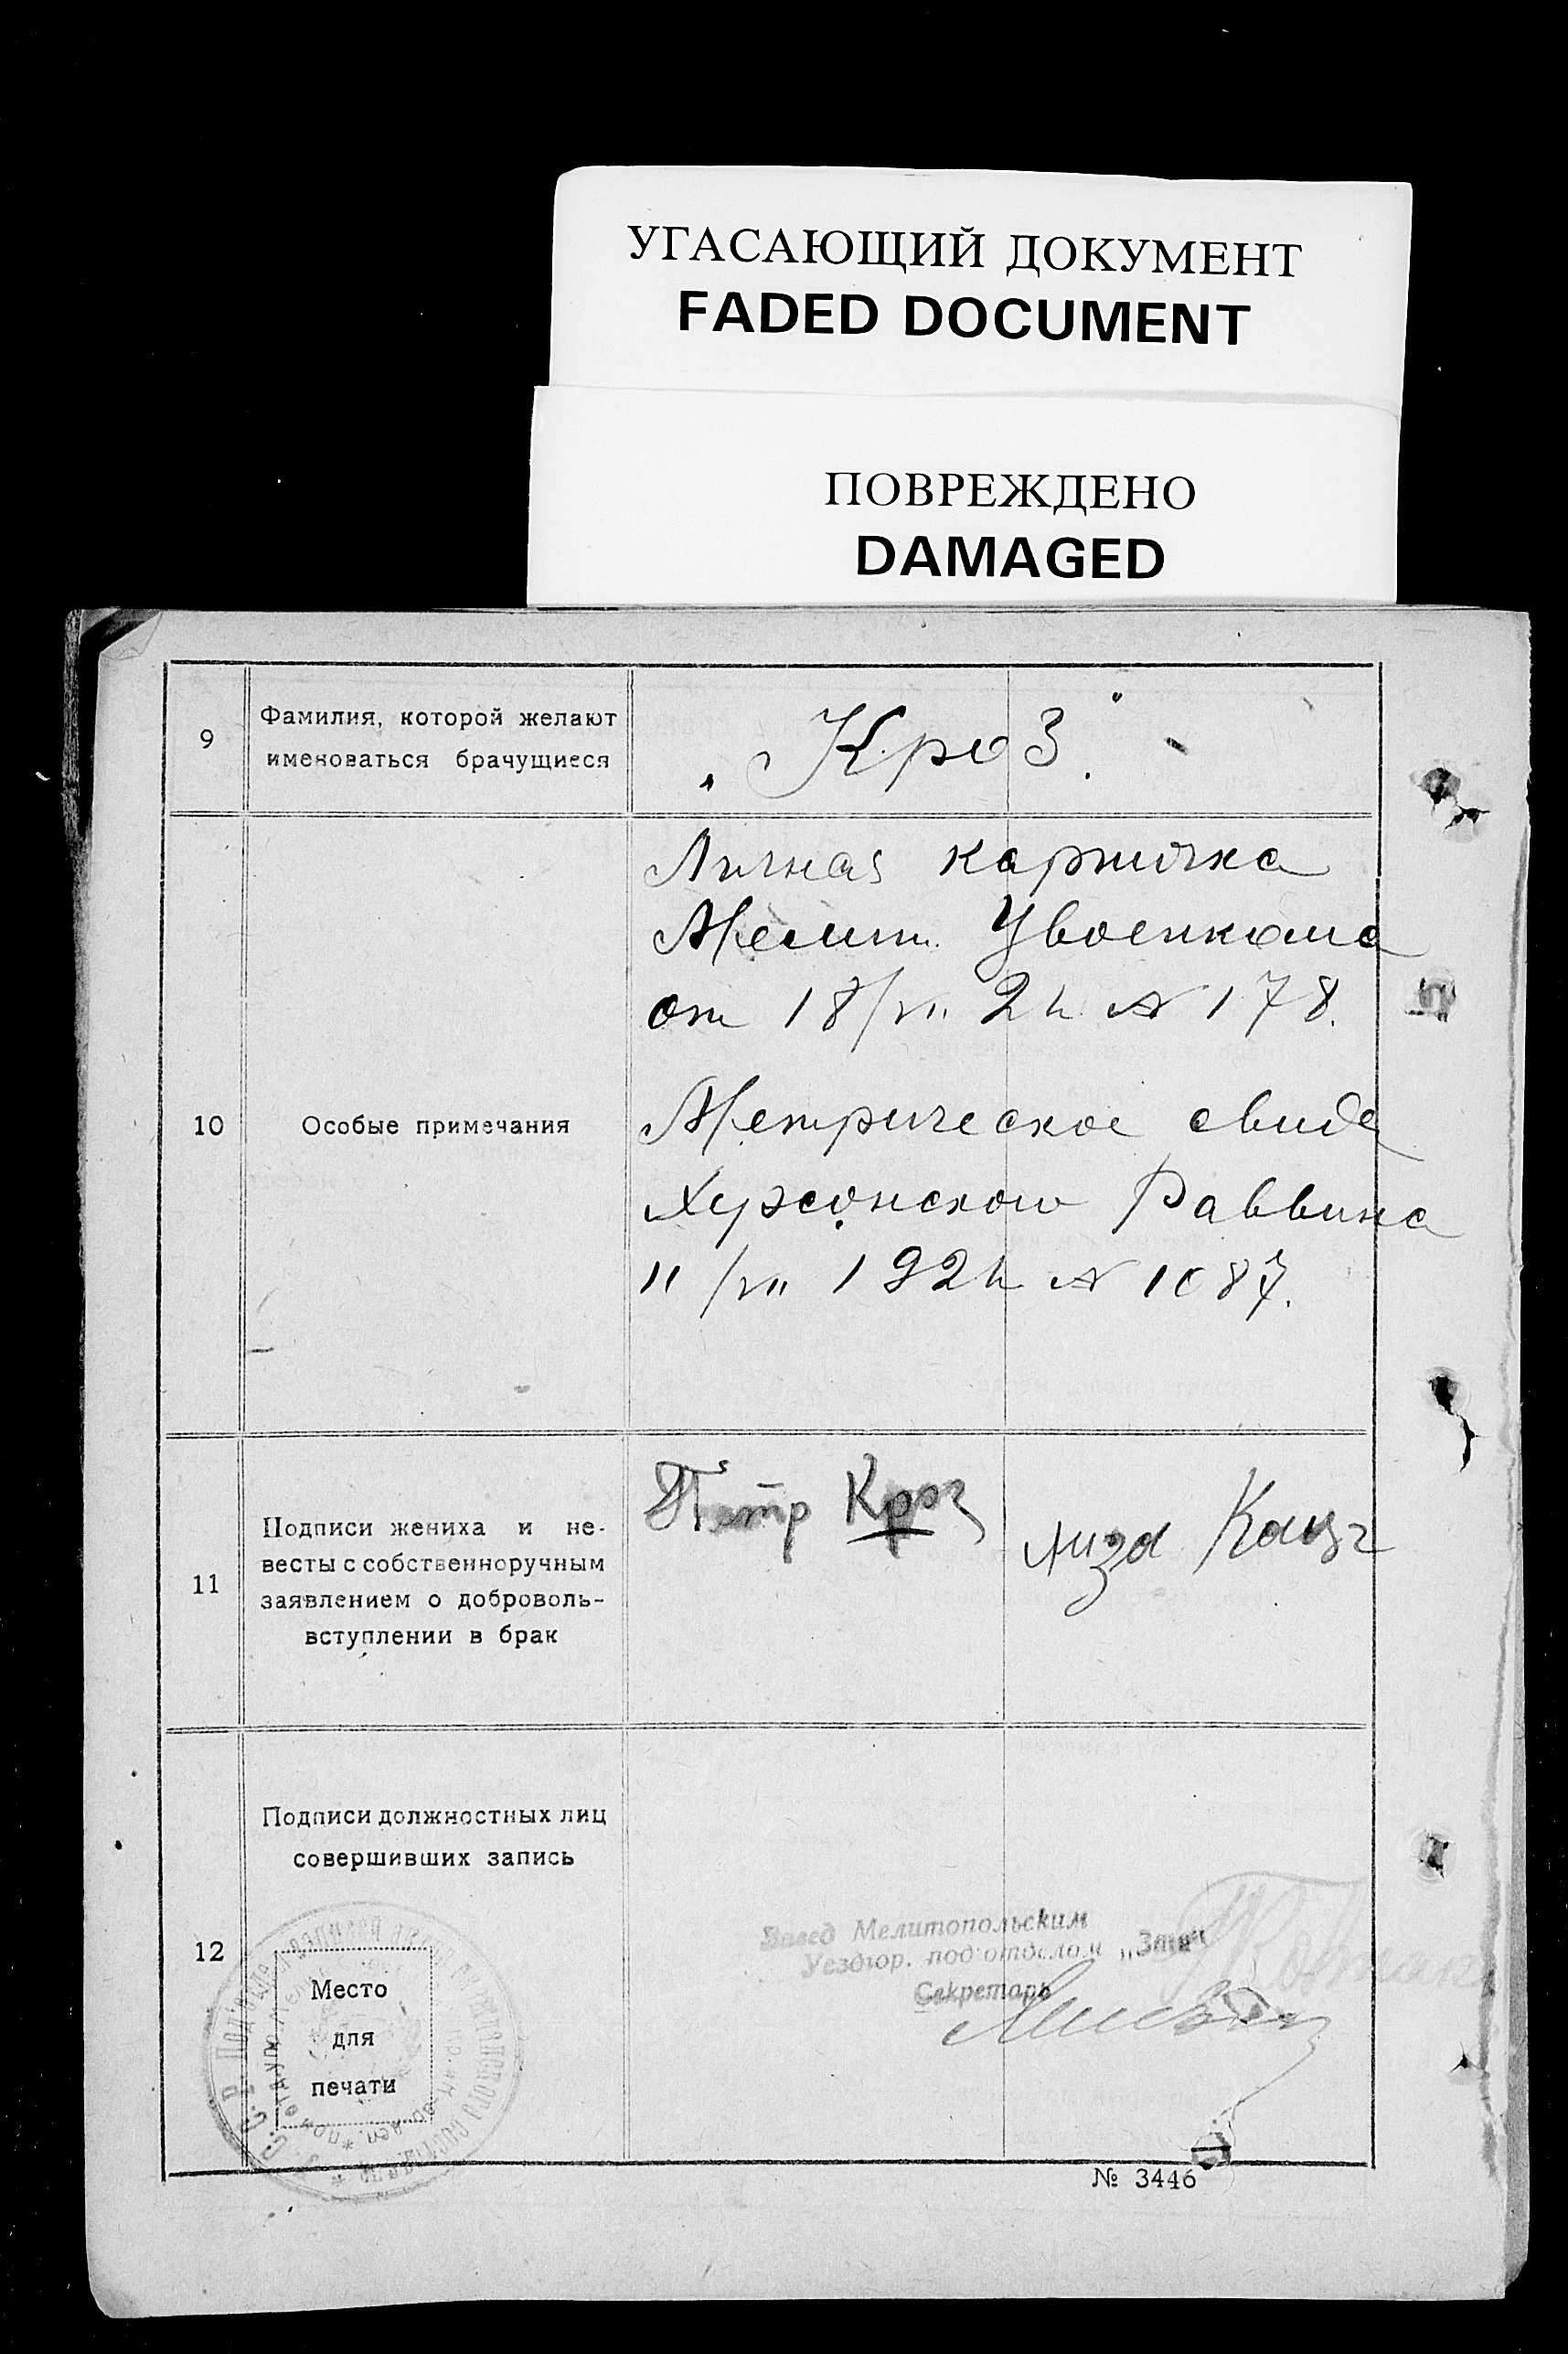 УГАСАЮЩИЙ ДОКУМЕНТ
FADED DOCUMENT
ПОВРЕЖДЕНО
DAMAGED
9
Фамилия, которой желают
именоваться брачущиеся
„Кроз."
10
Особые примечания
Личная карточка
Мелит. Увоенкома
от 18/VII 2 № 178.
Метрическое свид
Херсонского Раввина
11/VII 192 № 1087.
11
Подписи жениха и не-
весты с собственноручным
заявлением о доброволь-
вступлении в брак
Петр Кроз
Лиза Кац
12
Подписи должностных лиц
совершивших запись
Место
для
печати
Завед Мелитопольским
Уездгор. под'отделом „Загс"
Секретарь
№ 3446